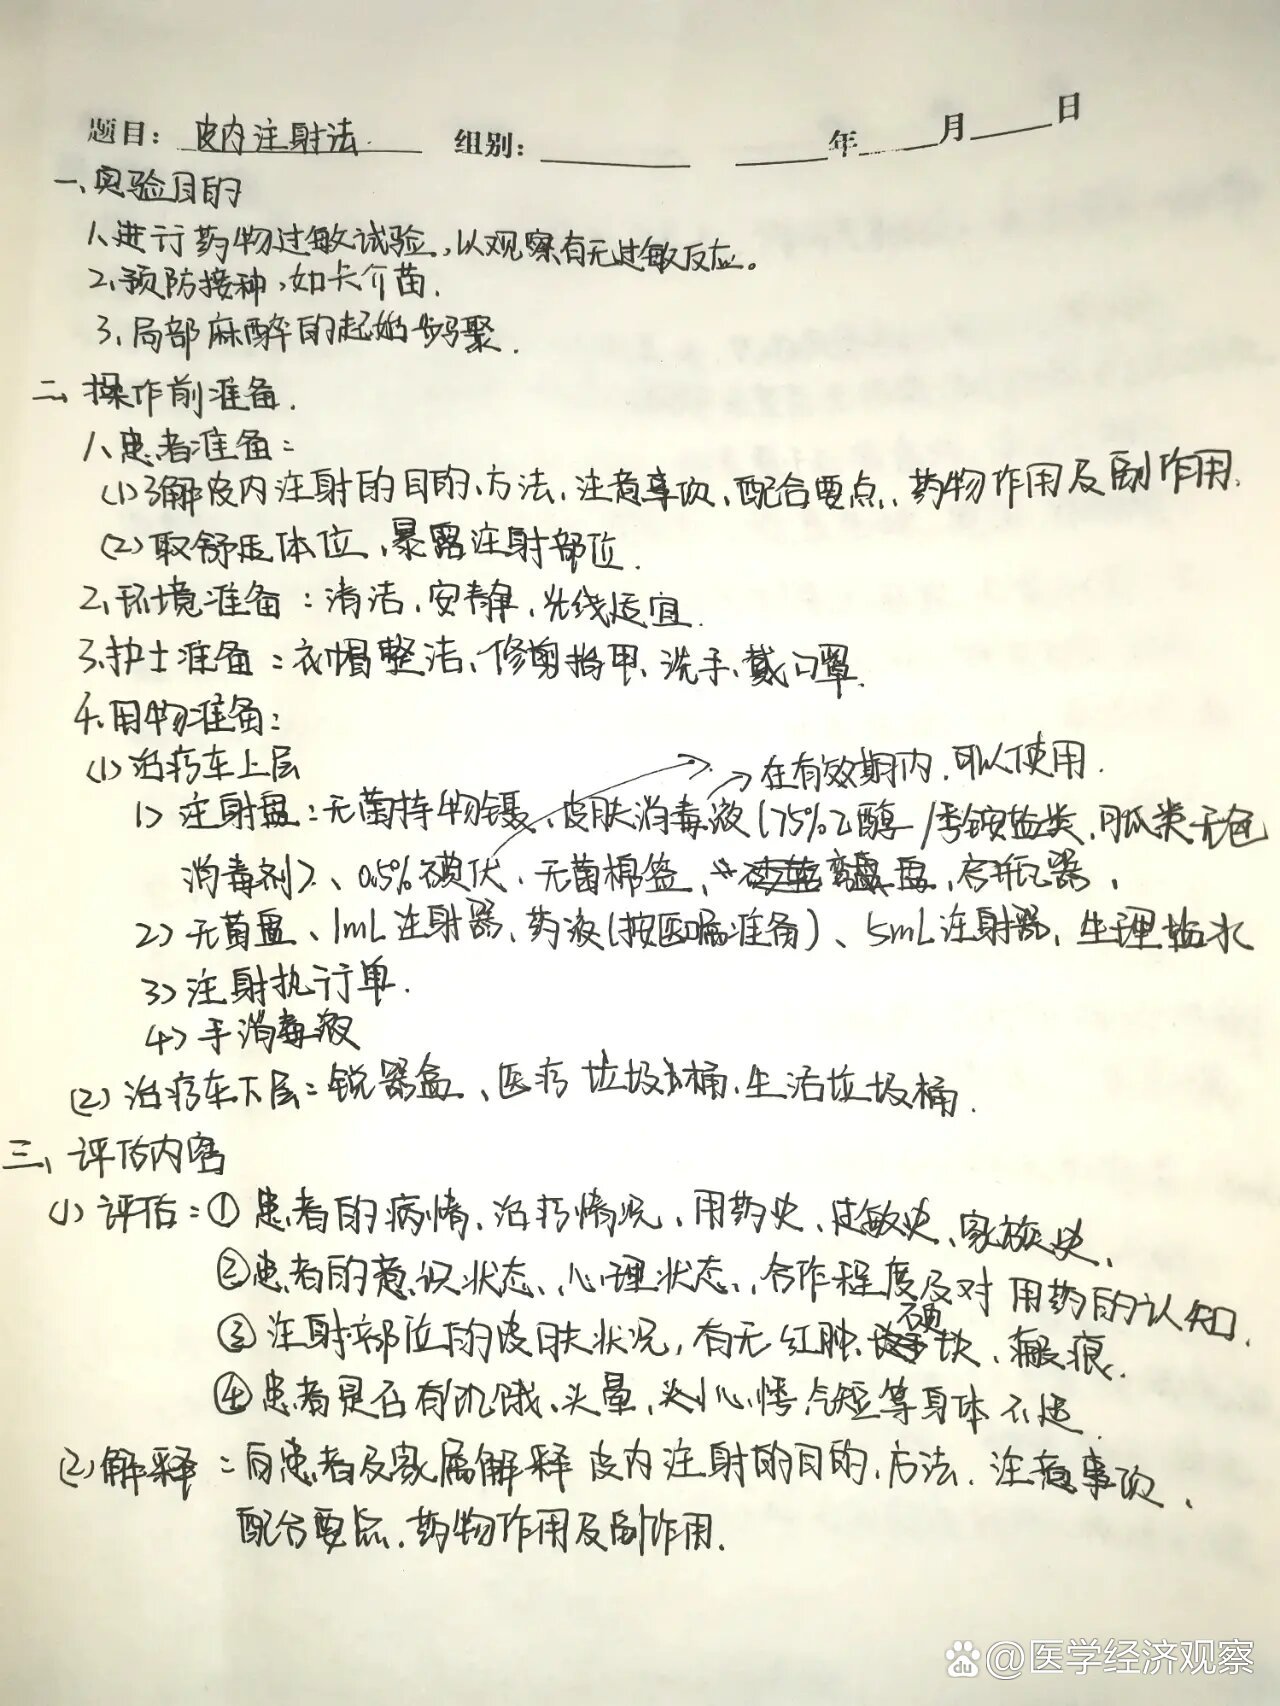 题目：皮内注射法. 组别： 年 月 日
一、实验目的
1、进行药物过敏试验，以观察有无过敏反应。
2、预防接种，如卡介苗.
3、局部麻醉的起始步骤.
二、操作前准备.
1、患者准备：
(1)了解皮内注射的目的、方法、注意事项、配合要点、药物作用及副作用.
(2)取舒适体位、暴露注射部位.
2、环境准备：清洁、安静、光线适宜.
3、护士准备：衣帽整洁、修剪指甲、洗手、戴口罩.
4、用物准备：
(1)治疗车上层
→在有效期内，可以使用.
1)注射盘：无菌持物镊、皮肤消毒液(75%乙醇/季铵盐类、 类无色
消毒剂)、0.5%碘伏、无菌棉签、弯盘、启瓶器.
2)无菌盘、1mL注射器、药液(按医嘱准备)、5mL注射器、生理盐水
3)注射执行单.
4)手消毒液
(2)治疗车下层：锐器盒、医疗垃圾桶、生活垃圾桶.
三、评估内容
(1)评估：①患者的病情、治疗情况、用药史、过敏史、家族史、
②患者的意识状态、心理状态、合作程度及对用药的认知.
③注射部位的皮肤状况，有无红肿、硬块、瘢痕.
④患者是否有饥饿、头晕、心悸气短等身体不适.
(2)解释：向患者及家属解释皮内注射的目的、方法、注意事项、
配合要点、药物作用及副作用.
Bai du @医学经济观察